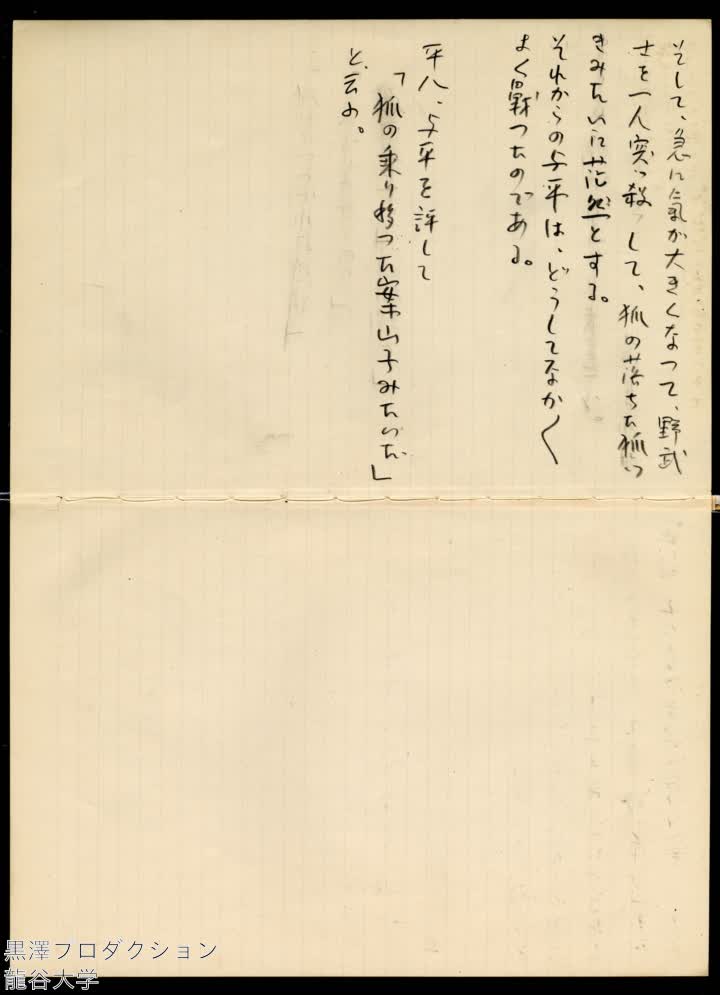 そして、急に氣が大きくなつて、野武
士を一人突っ殺して、狐の落ちた狐つ
きみたいに茫然とする。
それからの与平は、どうしてなか〱
よく戰つたのである。
平八、与平を評して
「狐の乗り移つた案山子みたいだ」
と云う。
黒澤プロダクション
龍谷大学